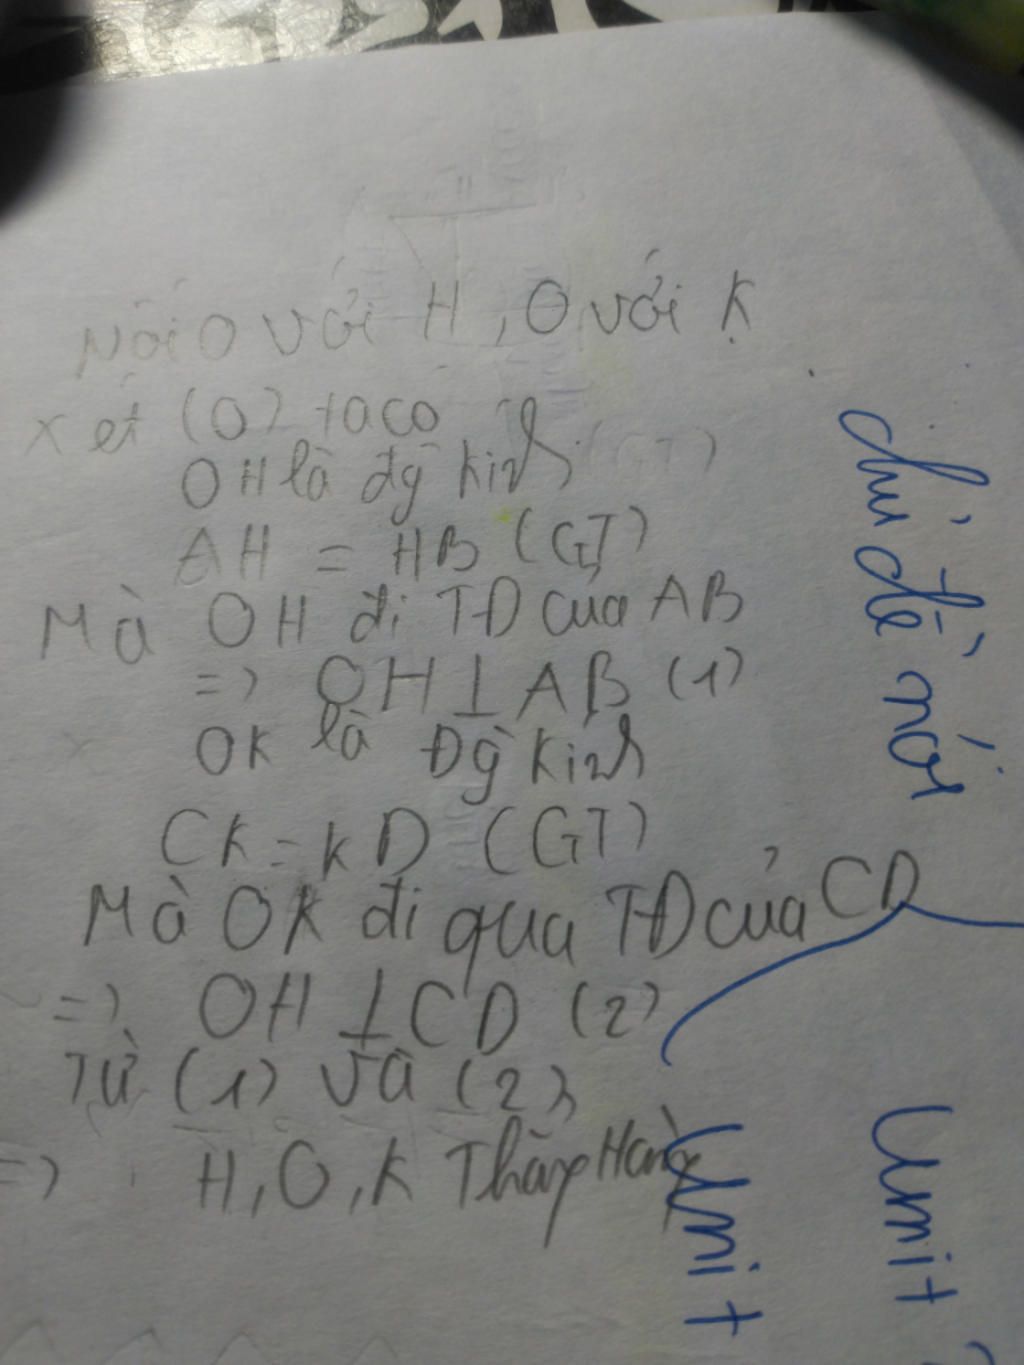 Nối O với H, O với K
xét (O) ta có
OH là đg kính (GT)
AH = HB (GT)
Mà OH đi TĐ của AB
=> OH ⊥ AB (1)
OK là Đg kính
CK = KD (GT)
Mà OK đi qua TĐ của CD
=> OH ⊥ CD (2)
Từ (1) và (2)
=> H, O, K Thẳng Hàng
chủ đề nói
Unit
Unit